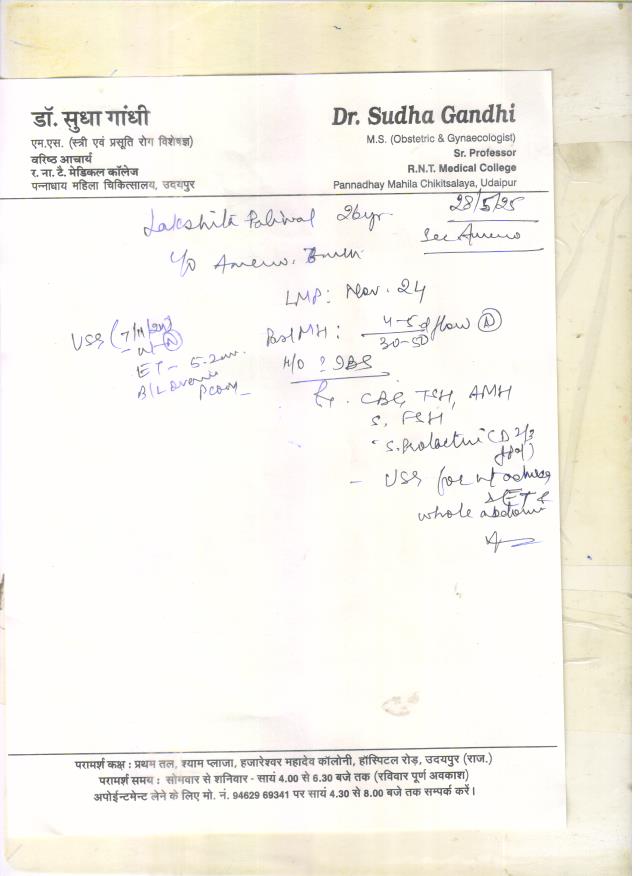 डॉ. सुधा गांधी
एम.एस. (स्त्री एवं प्रसूति रोग विशेषज्ञ)
वरिष्ठ आचार्य
र. ना. टै. मेडिकल कॉलेज
पन्नाधाय महिला चिकित्सालय, उदयपुर
Dr. Sudha Gandhi
M.S. (Obstetric & Gynaecologist)
Sr. Professor
R.N.T. Medical College
Pannadhay Mahila Chikitsalaya, Udaipur
28/5/25
Lakshita Paliwal 26yr.
Sec Ameno
LMP: Nov. 24
USG (7/11/24)
ET - 5.2mm.
B/L ovaries
PCOM
Past MH: 4-5d flow N
30-50
H/O ? IBS
CBC, TSH, AMH
S. FSH
S. Prolactin (D 2/3
- USG for ut
ET &
whole abdomen
परामर्श कक्ष : प्रथम तल, श्याम प्लाजा, हजारेश्वर महादेव कॉलोनी, हॉस्पिटल रोड़, उदयपुर (राज.)
परामर्श समय : सोमवार से शनिवार - सायं 4.00 से 6.30 बजे तक (रविवार पूर्ण अवकाश)
अपोईन्टमेन्ट लेने के लिए मो. नं. 94629 69341 पर सायं 4.30 से 8.00 बजे तक सम्पर्क करें।